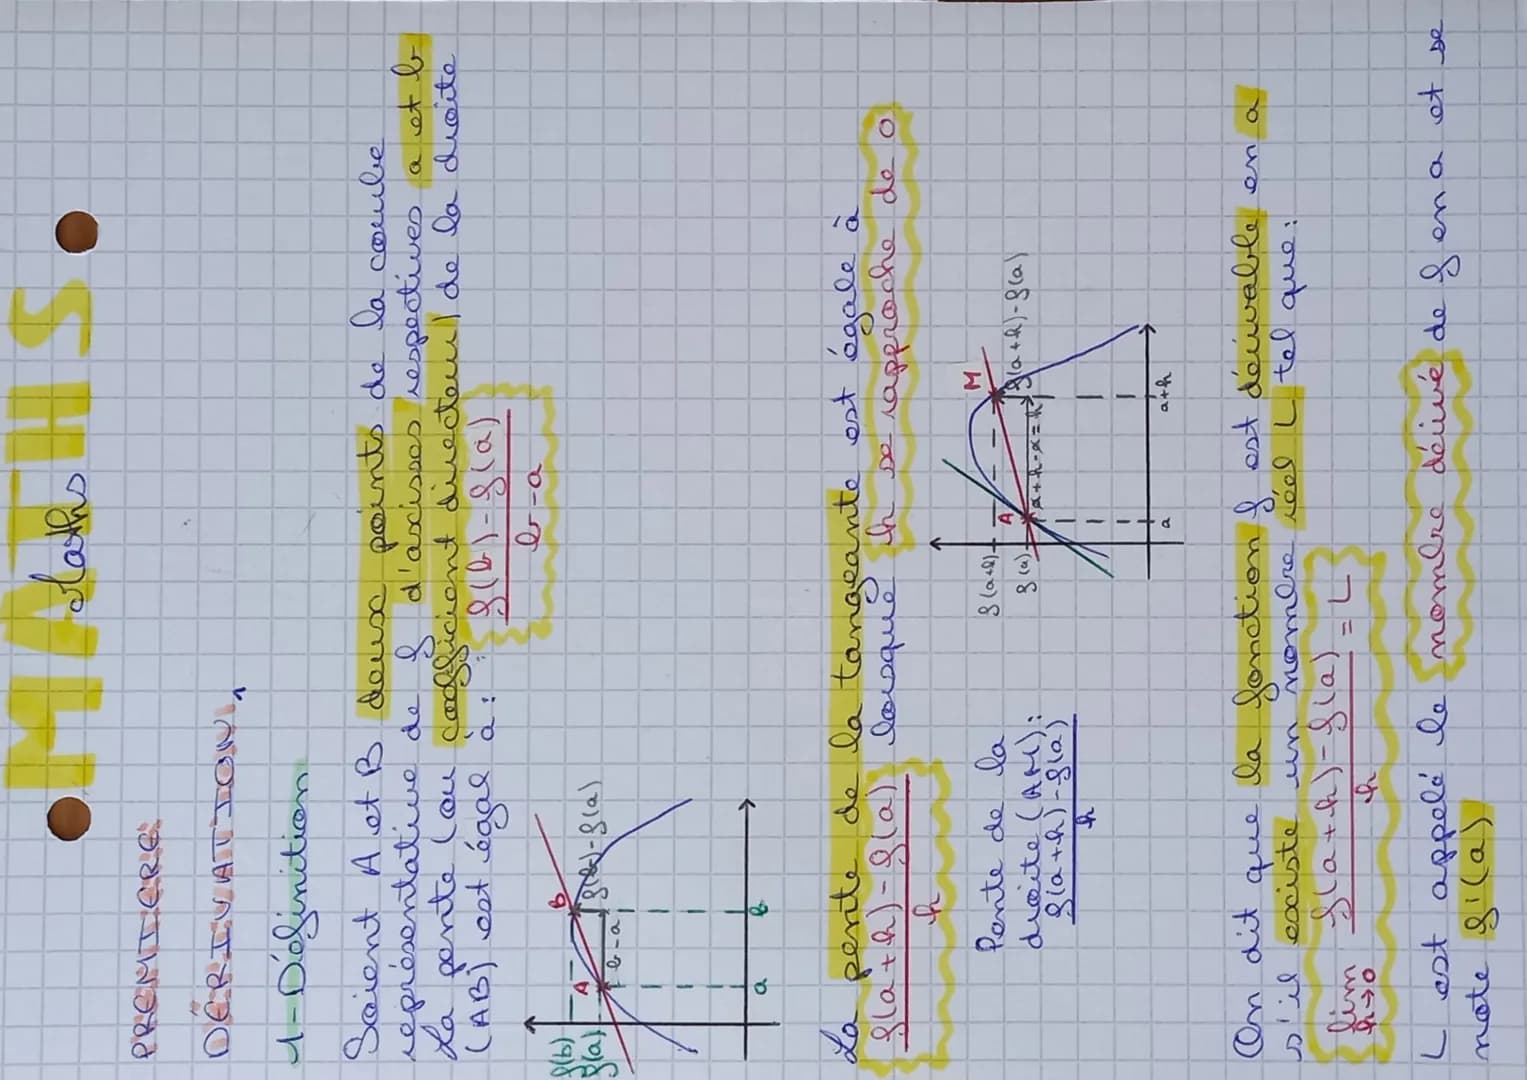 MATHS
Maths
PREMIERE
DÉRIVATION
1-Définition
Soient A et B deux points de la courbe
représentative de f d'ascisses respectives a et b
La pente (ou coefficient directeur) de la droite
(AB) est égal à :
f(b)-f(a)
b-a
f(b)
f(a)
A
B
b-a
f(b)-f(a)
a
b
La pente de la tangeante est égale à
f(a+h)-f(a)
h
lorsque h se rapproche de 0
Pente de la
droite (AM):
f(a+h)-f(a)
h
f(a+h)
f(a)
A
M
a+h-a=h
f(a+h)-f(a)
a
a+h
On dit que la fonction f est dérivable en a
s'il existe un nombre réel L tel que:
lim f(a+h)-f(a) = L
h→0 h
L est appelé le nombre dérivé de f en a et se
note f'(a)